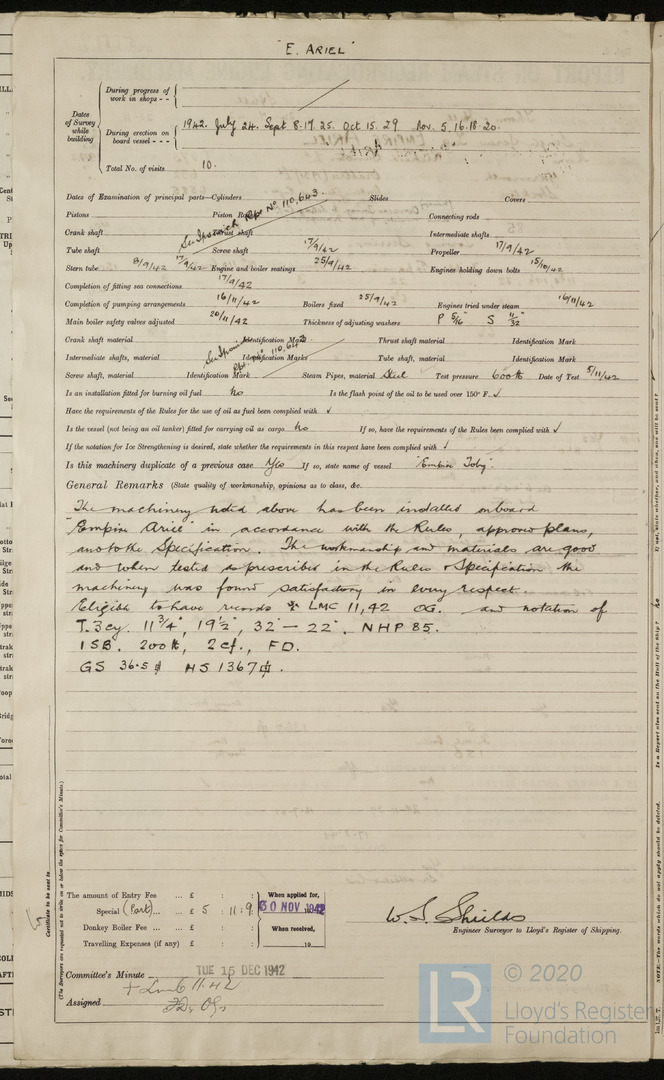 "E. ARIEL"
During progress of work in shops - -
Dates of Survey while building
During erection on board vessel - - - 1942. July 24. Sept 8.17.25. Oct 15.29. Nov. 5.16.18.20.
Total No. of visits 10.
Dates of Examination of principal parts—Cylinders Slides Covers
Pistons Piston Rods Connecting rods
See Ipswich Rpt No 110,643.
Crank shaft Thrust shaft Intermediate shafts
Tube shaft Screw shaft 17/9/42 Propeller 17/9/42
Stern tube 8/9/42 17/9/42 Engine and boiler seatings 25/9/42 Engines holding down bolts 15/10/42
Completion of fitting sea connections 17/9/42
Completion of pumping arrangements 16/11/42 Boilers fixed 25/9/42 Engines tried under steam 16/11/42
Main boiler safety valves adjusted 20/11/42 Thickness of adjusting washers P 5/16" S 11/32"
Crank shaft material Identification Mark Thrust shaft material Identification Mark
See Ipswich Rpt No 110,643
Intermediate shafts, material Identification Marks Tube shaft, material Identification Mark
Screw shaft, material Identification Mark Steam Pipes, material Steel Test pressure 600 lb Date of Test 5/11/42
Is an installation fitted for burning oil fuel No Is the flash point of the oil to be used over 150° F. ✓
Have the requirements of the Rules for the use of oil as fuel been complied with ✓
Is the vessel (not being an oil tanker) fitted for carrying oil as cargo No If so, have the requirements of the Rules been complied with ✓
If the notation for Ice Strengthening is desired, state whether the requirements in this respect have been complied with ✓
Is this machinery duplicate of a previous case Yes If so, state name of vessel "Empire Toby".
General Remarks (State quality of workmanship, opinions as to class, &c.
The machinery noted above has been installed onboard
"Empire Ariel" in accordance with the Rules, approved plans,
and to the Specification. The workmanship and materials are good
and when tested as prescribed in the Rules & Specification the
machinery was found satisfactory in every respect.
Eligible to have records LMC 11,42 OG. and notation of
T. 3cy. 11 3/4", 19 1/2", 32" — 22". NHP 85.
1 SB. 200 lb, 2 cf., FD.
GS 36.5 HS 1367.
The amount of Entry Fee ... £ : :
Special (Part) ... ... £ 5 : 11 : 9
Donkey Boiler Fee ... £ : :
Travelling Expenses (if any) £ : :
When applied for, 30 NOV 1942
When received, 19
W. S. Shields
Engineer Surveyor to Lloyd's Register of Shipping.
Committee's Minute TUE 15 DEC 1942
Assigned + Lmc 11.42
FD, OG
Certificate to be sent to
(The Surveyors are requested not to write on or below the space for Committee's Minute.)
© 2020
LR Lloyd's Register Foundation